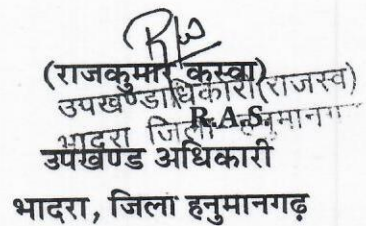 (राजकुमार कस्वा)
उपखण्डाधिकारी (राजस्व)
R.A.S.
भादरा जिला हनुमानगढ़
उपखण्ड अधिकारी
भादरा, जिला हनुमानगढ़